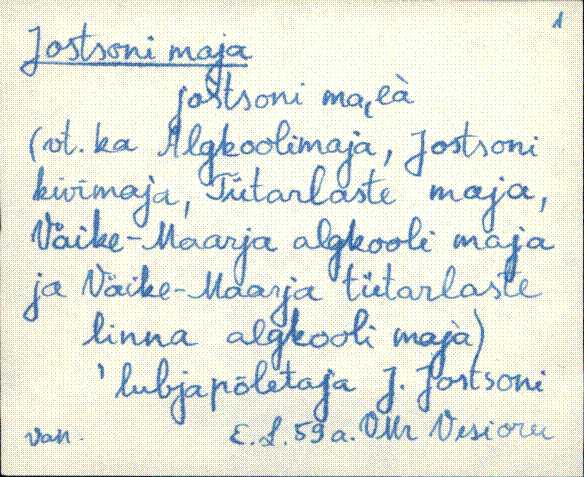 1
Jostsoni maja
jostsoni
(vt. ka Algkoolimaja, Jostsoni
kivimaja, Tütarlaste maja,
Väike-Maarja algkooli maja
ja Väike-Maarja tütarlaste
linna algkooli maja)
'lubjapõletaja J. Jostsoni
van. E.L. 59 a. VMr Vesioru